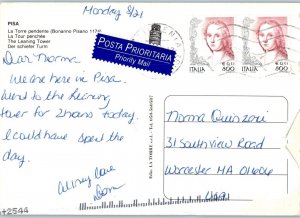 Monday 8/21
PISA
La Torre pendente (Bonanno Pisano 1174)
La Tour penchée
The Leaning Tower
Der schiefer Turm
POSTA PRIORITARIA
Priority Mail
ITALIA
800
€ 0,41
ITALIA
800
€ 0,41
Dear Norma
We are here in Pisa.
Went to the leaning
tower for 2 hours today.
I could have spent the
day.
All my love
Dom
Norma Quinzari
31 Southview Road
Worcester MA 01606
USA
12544